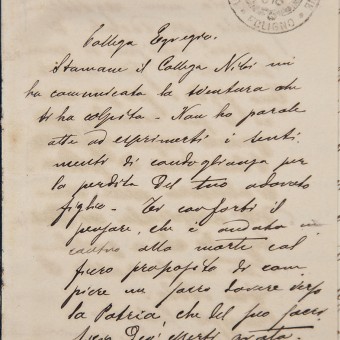 FOLIGNO
Collega Egregio.
Stamane il Collega Nibi mi
ha comunicata la sventura che
ti ha colpito - Non ho parole
atte ad esprimerti i senti
menti di condoglianza per
la perdita del tuo adorato
figlio - Ti conforti il
pensare, che è andato in
contro alla morte col
fiero proposito di com
piere un sacro dovere verso
la Patria, che del suo sacri